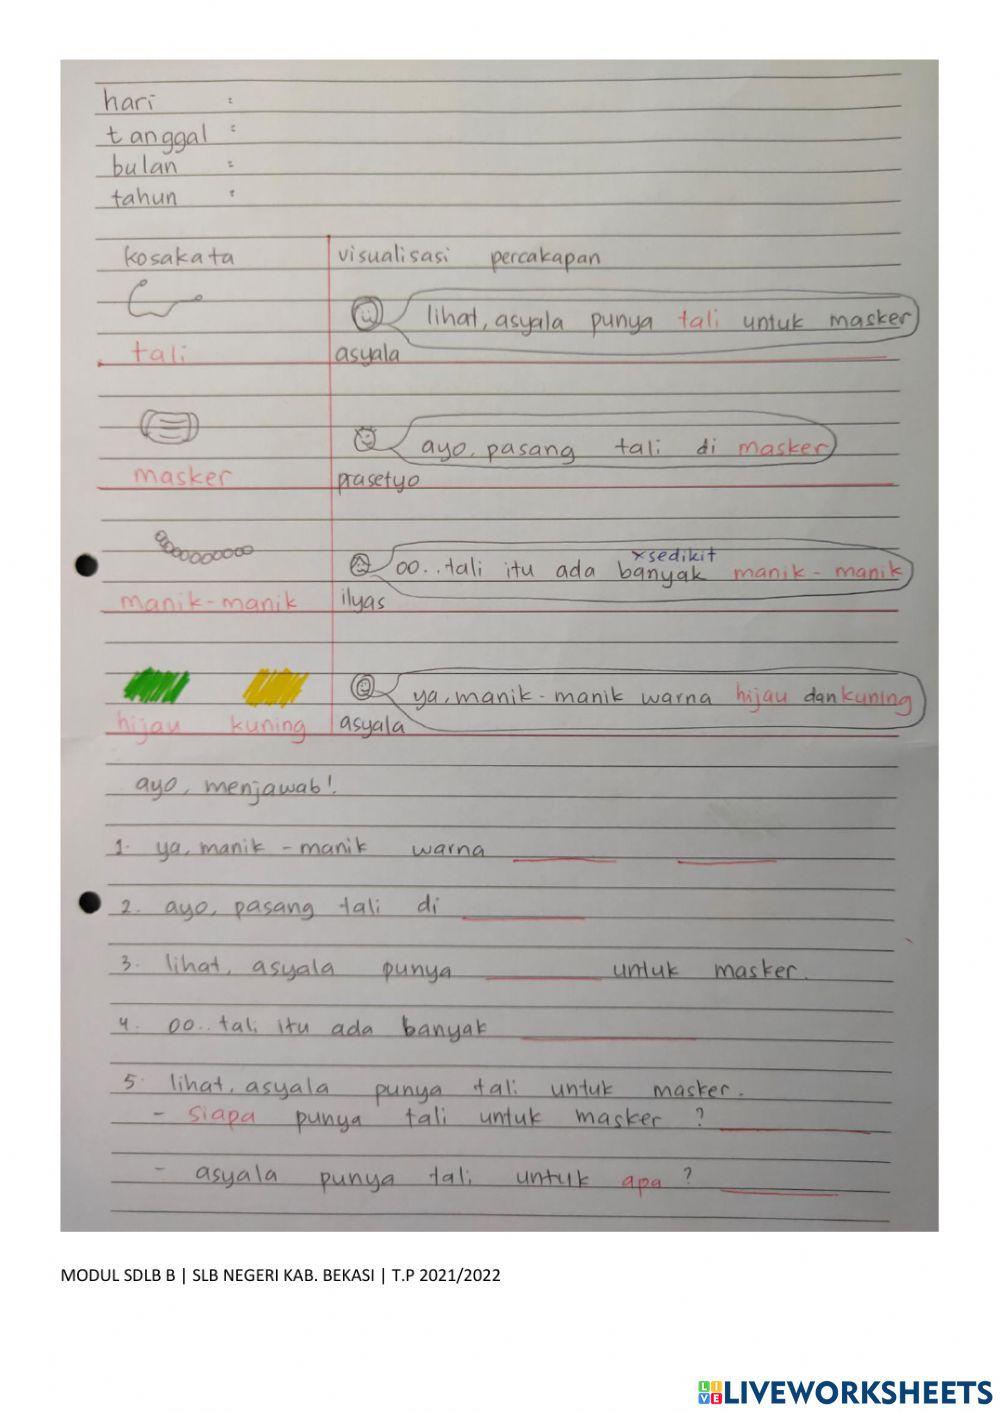 hari :
tanggal :
bulan :
tahun :
kosakata visualisasi percakapan
lihat, asyala punya tali untuk masker
tali asyala
ayo, pasang tali di masker
masker prasetyo
xsedikit
oo..tali itu ada banyak manik-manik
manik-manik ilyas
ya, manik-manik warna hijau dan kuning
hijau kuning asyala
ayo, menjawab!
1. ya, manik-manik warna
2. ayo, pasang tali di
3. lihat, asyala punya untuk masker.
4. oo..tali itu ada banyak
5. lihat, asyala punya tali untuk masker.
- siapa punya tali untuk masker ?
- asyala punya tali untuk apa ?
MODUL SDLB B | SLB NEGERI KAB. BEKASI | T.P 2021/2022
LIVE LIVEWORKSHEETS